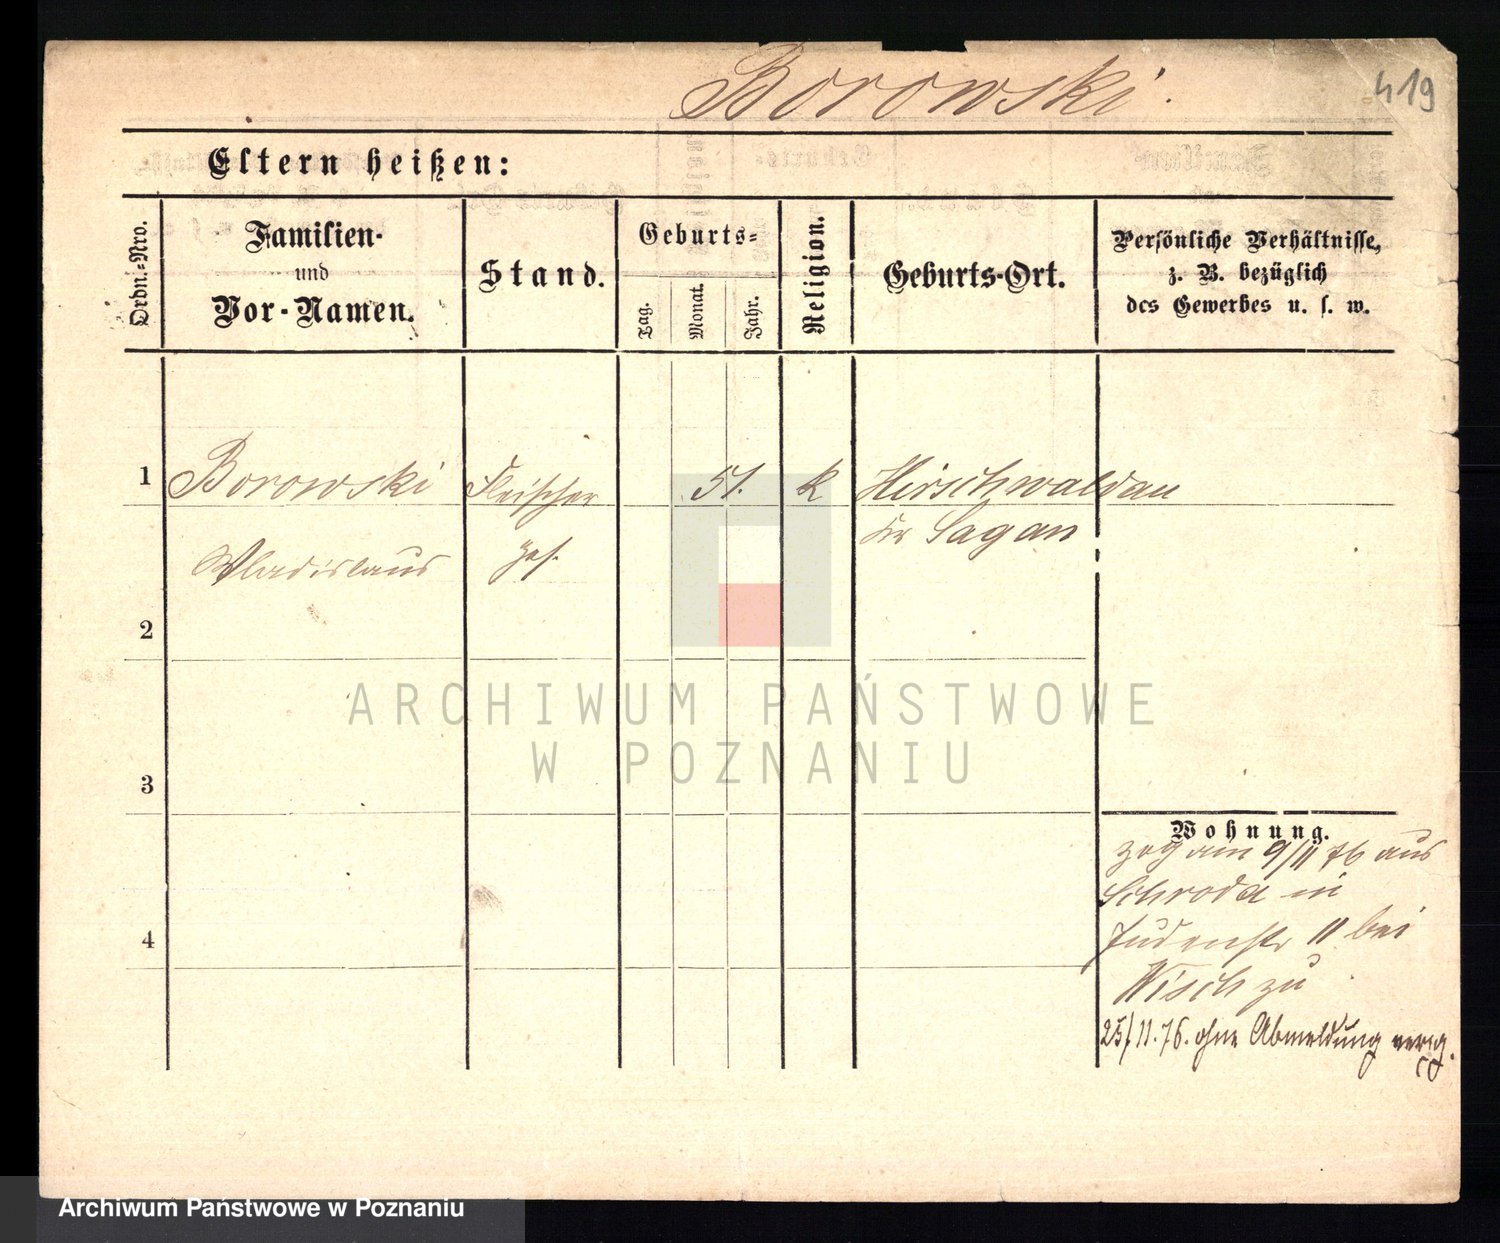 Borowski.
419
Eltern heißen:
Ordn.-Nro.
Familien-
und
Vor-Namen.
Stand.
Geburts-
Tag.
Monat.
Jahr.
Religion.
Geburts-Ort.
Persönliche Verhältnisse,
z. B. bezüglich
des Gewerbes u. s. w.
1
Borowski
Fleischer
51.
k
Hirschwaldau
Kr Sagan
Wladislaus
Ges.
2
3
4
Wohnung.
zog am 9/11 76 aus
Schroda in
Judenstr 11 bei
Wisch zu
25/11.76. ohne Abmeldung verzg.
ARCHIWUM PAŃSTWOWE
W POZNANIU
Archiwum Państwowe w Poznaniu